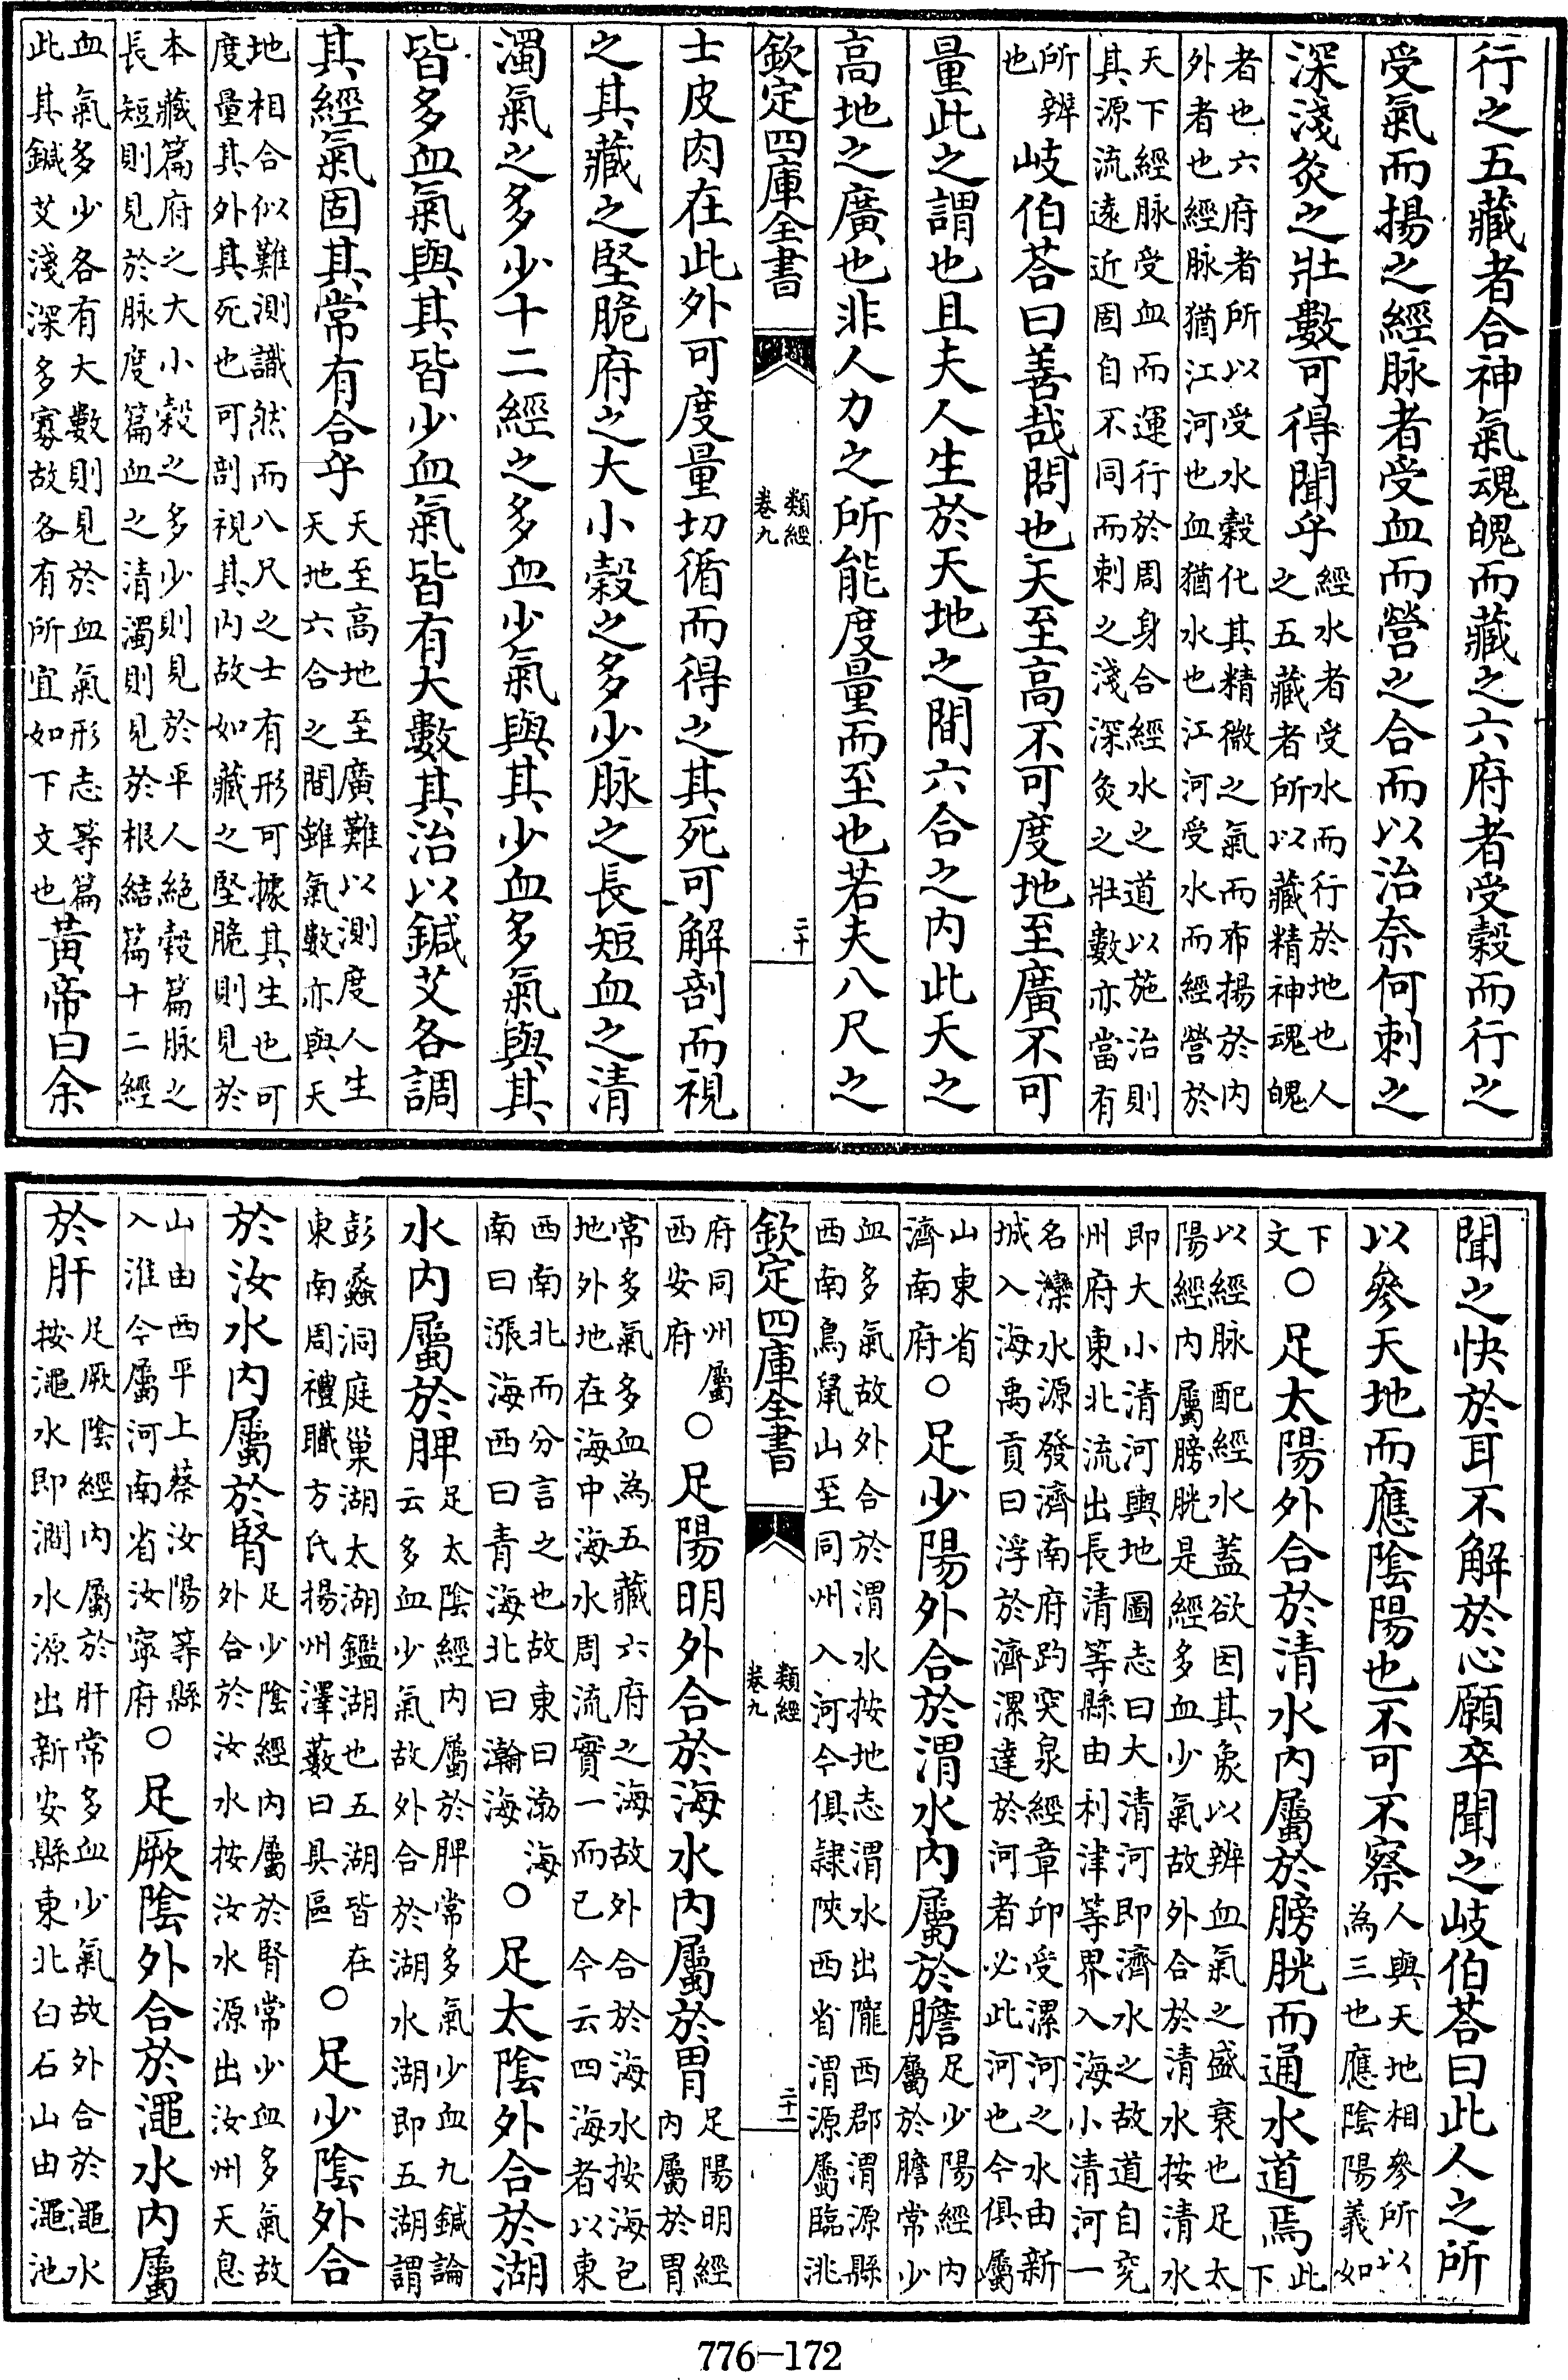 行之五藏者合神氣魂魄而藏之六府者受穀而行之
受氣而揚之經脉者受血而營之合而以治奈何刺之
深淺灸之壯數可得聞乎經水者受水而行於地也人之五藏者所以藏精神魂魄
者也六府者所以受水穀化其精微之氣而布揚於內外者也經脉猶江河也血猶水也江河受水而經營於
天下經脉受血而運行於周身合經水之道以施治則其源流遠近固自不同而刺之淺深灸之壯數亦當有
所辨也岐伯荅曰善哉問也天至高不可度地至廣不可
量此之謂也且夫人生於天地之間六合之內此天之
高地之廣也非人力之所能度量而至也若夫八尺之
欽定四庫全書 類經卷九 二十
士皮肉在此外可度量切循而得之其死可解剖而視
之其藏之堅脆府之大小穀之多少脉之長短血之清
濁氣之多少十二經之多血少氣與其少血多氣與其
皆多血氣與其皆少血氣皆有大數其治以鍼艾各調
其經氣固其常有合乎天至高地至廣難以測度人生天地六合之間雖氣數亦與天
地相合似難測識然而八尺之士有形可據其生也可度量其外其死也可剖視其內故如藏之堅脆則見於
本藏篇府之大小穀之多少則見於平人絕穀篇脉之長短則見於脉度篇血之清濁則見於根結篇十二經
血氣多少各有大數則見於血氣形志等篇此其鍼艾淺深多寡故各有所宜如下文也黃帝曰余
聞之快於耳不解於心願卒聞之岐伯荅曰此人之所
以參天地而應陰陽也不可不察人與天地相參所以為三也應陰陽義如
下文○足太陽外合於清水內屬於膀胱而通水道焉此下
以經脉配經水蓋欲因其象以辨血氣之盛衰也足太陽經內屬膀胱是經多血少氣故外合於清水按清水
即大小清河輿地圖志曰大清河即濟水之故道自兗州府東北流出長清等縣由利津等界入海小清河一
名濼水源發濟南府趵突泉經章邱受漯河之水由新城入海禹貢曰浮於濟漯達於河者必此河也今俱屬
山東省濟南府○足少陽外合於渭水內屬於膽足少陽經內屬於膽常少
血多氣故外合於渭水按地志渭水出隴西郡渭源縣西南鳥鼠山至同州入河今俱隸陝西省渭源屬臨洮
欽定四庫全書 類經卷九 二十一
府同州屬西安府○足陽明外合於海水內屬於胃足陽明經內屬於胃
常多氣多血為五藏六府之海故外合於海水按海包地外地在海中海水周流實一而已今云四海者以東
西南北而分言之也故東曰渤海南曰漲海西曰青海北曰瀚海○足太陰外合於湖
水內屬於脾足太陰經內屬於脾常多氣少血九鍼論云多血少氣故外合於湖水湖即五湖謂
彭蠡洞庭巢湖太湖鑑湖也五湖皆在東南周禮職方氏揚州澤藪曰具區○足少陰外合
於汝水內屬於腎足少陰經內屬於腎常少血多氣故外合於汝水按汝水源出汝州天息
山由西平上蔡汝陽等縣入淮今屬河南省汝寧府○足厥陰外合於澠水內屬
於肝足厥陰經內屬於肝常多血少氣故外合於澠水按澠水即澗水源出新安縣東北白石山由澠池
776—172